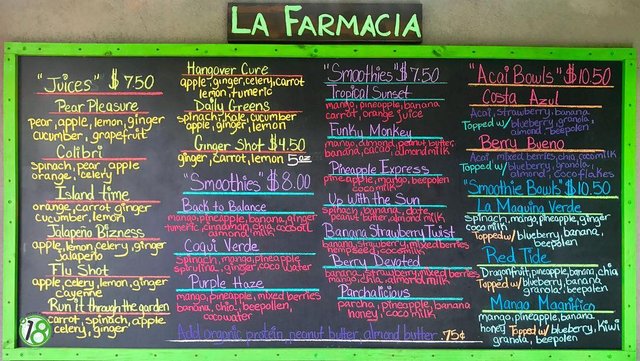 LA FARMACIA
"Juices" $7.50
Pear Pleasure
pear, apple, lemon, ginger
cucumber, grapefruit
Colibri
spinach, pear, apple
orange, celery
Island time
orange, carrot, ginger
cucumber, lemon
Jalapeño Bizness
apple, lemon, celery, ginger
Jalapeño
Flu Shot
apple, celery, lemon, ginger
cayenne
Run it through the garden
carrot, spinach, apple
celery, ginger
18
Hangover Cure
apple, ginger, celery, carrot
lemon, tumeric
Daily Greens
spinach, kale, cucumber
apple, ginger, lemon
Ginger Shot $4.50
ginger, carrot, lemon 5oz
"Smoothies" $8.00
Back to Balance
mango, pineapple, banana, ginger
tumeric, cinnamon, chia, coco oil
almond milk
Coqui Verde
spinach, mango, pineapple
spirulina, ginger, coco water
Purple Haze
mango, pineapple, mixed berries
banana, chia, beepollen,
coco water
"Smoothies" $7.50
Tropical Sunset
mango, pineapple, banana
carrot, orange juice
Funky Monkey
mango, almond, peanut, butter,
banana, cacao, almond milk
Pineapple Express
pineapple, mango, beepollen
coco milk
Up With the Sun
spinach, banana, date,
peanut butter, almond milk
Banana Strawberry Twist
banana, strawberry, mixed berries
hempseed, coco milk
Berry Devoted
banana, strawberry, mixed berries
mango, chia, almond milk
Parchalicious
parcha, pineapple, banana
honey, coco milk
Add organic protein, peanut butter, almond butter .75¢
"Acai Bowls" $10.50
Costa Azul
Acai, strawberry, banana
Topped w/ blueberry, granola,
almond, beepollen
Berry Bueno
Acai, mixed berries, chia, coco milk
Topped w/ blueberry, granola,
almond, coco flakes
"Smoothie Bowls" $10.50
La Maquina Verde
spinach, mango, pineapple, ginger
coco milk
Topped w/ blueberry, banana,
beepollen
Red Tide
Dragonfruit, pineapple, banana, chia
Topped w/ blueberry, banana
granola, beepollen
Mango Magnifico
mango, pineapple, banana,
honey Topped w/ blueberry, kiwi
granola, beepollen